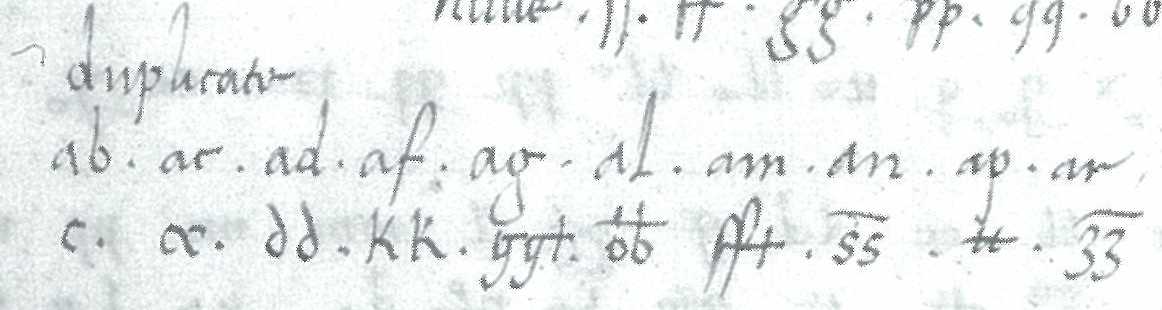 nulle . ſſ . ff . gg . pp . qq . bb
duplicate
ab . ac . ad . af . ag . al . am . an . ap . ar
c . cc . dd . kk . ggt . bb fft . ss . tt . zz